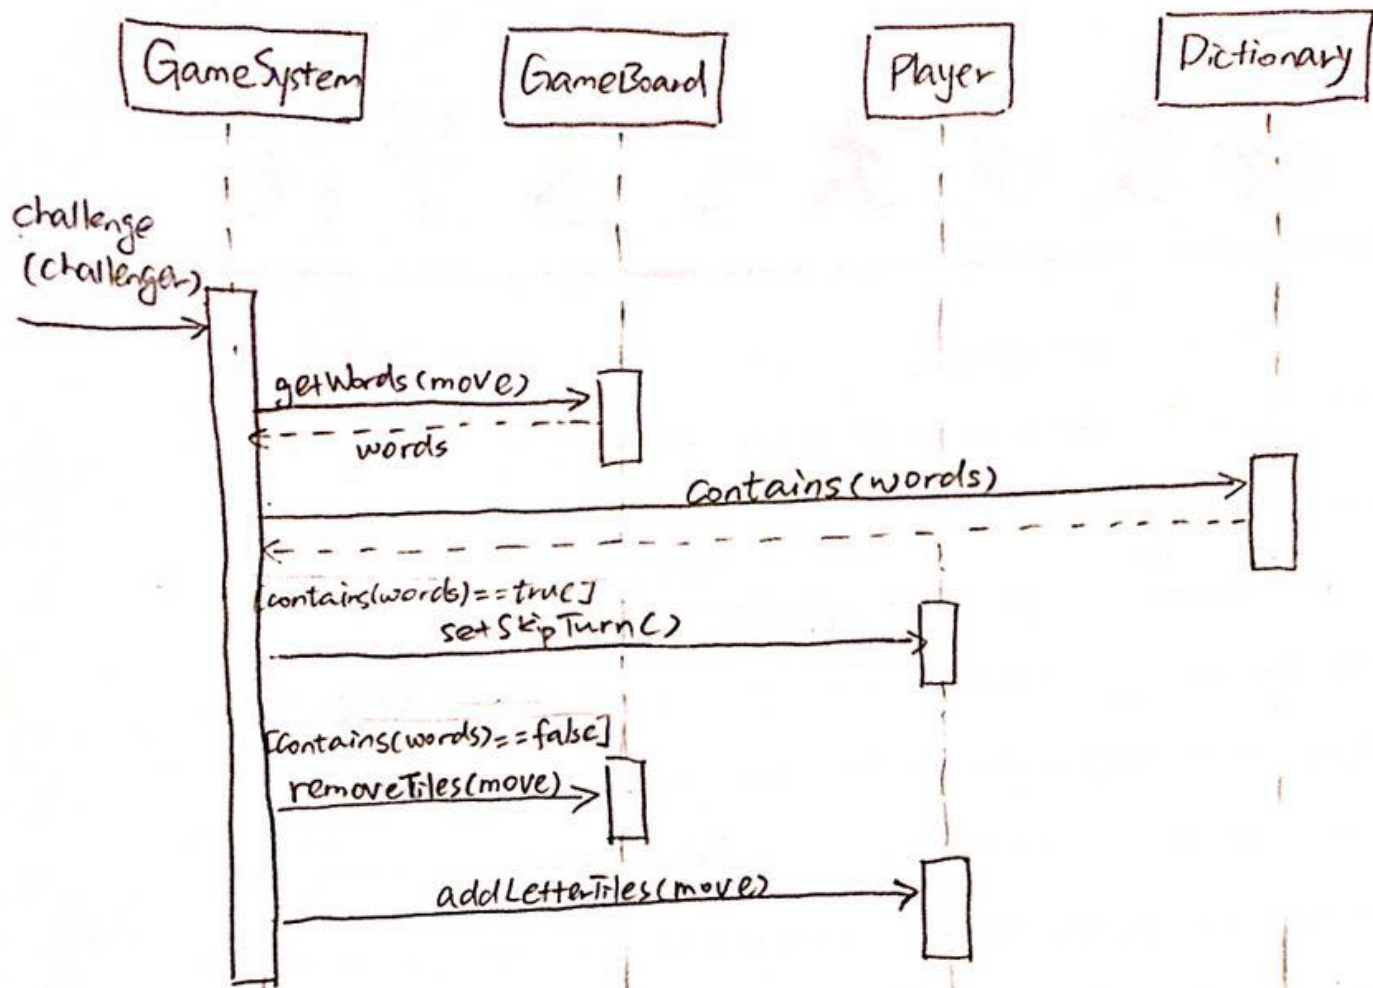 GameSystem
GameBoard
Player
Dictionary
challenge
(challenger)
getWords(move)
words
contains(words)
[contains(words)==true]
setSkipTurn()
[contains(words)==false]
removeTiles(move)
addLetterTiles(move)